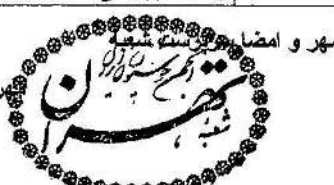 مهر و امضا سرپرست شعبه
انجمن خوشنویسان ایران
شعبه
تهران